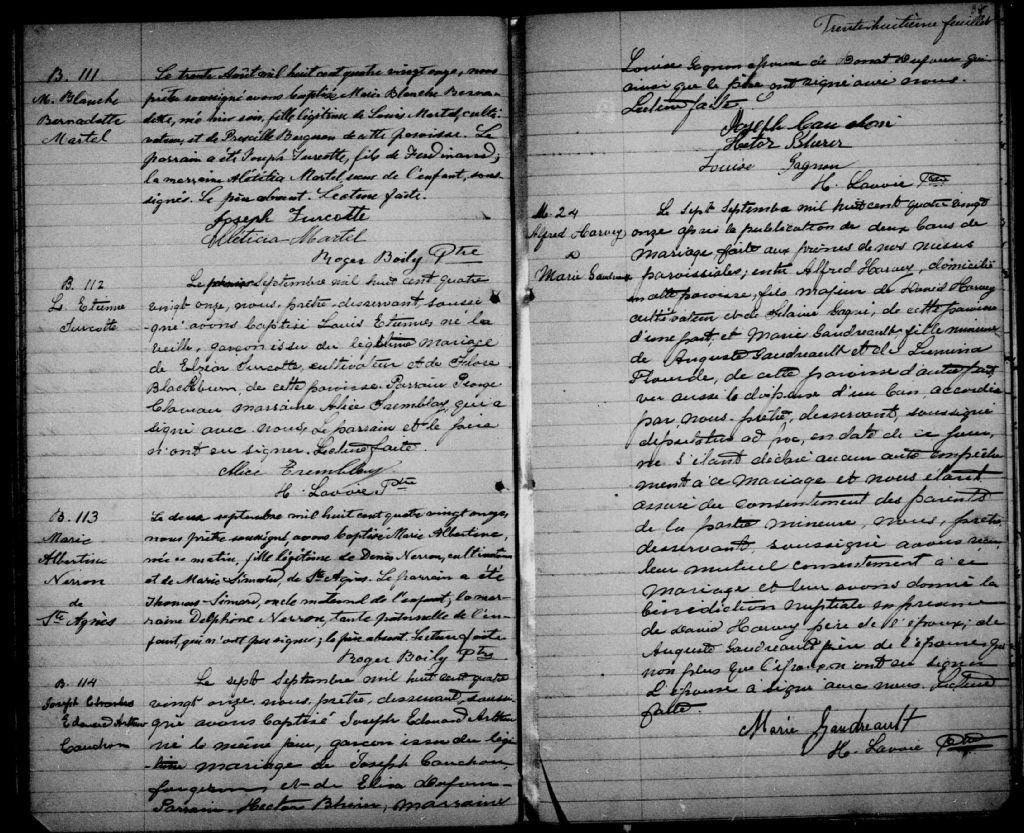 B. 111
M. Blanche
Bernadette
Martel
Le trente Août mil huit cent quatre vingt onze, nous
prêtre soussigné avons baptisé Marie Blanche Berna-
dette, née hier soir, fille légitime de Louis Martel, culti-
vateur, et de Priscille Bergeron de cette paroisse. Le
parrain a été Joseph Turcotte, fils de Ferdinand;
la marraine Alétitia Martel sœur de l'enfant, sous-
signés. Le père absent. Lecture faite.
Joseph Turcotte
Aléticia Martel
Roger Boily Ptre
B. 112
Ls. Etienne
Turcotte
Le premier Septembre mil huit cent quatre
vingt onze, nous, prêtre, desservant soussi
gné avons baptisé Louis Etienne, né la
veille, garçon issu du légitime mariage
de Elzéar Turcotte, cultivateur et de Flore
Blackburn, de cette paroisse. Parrain George
marraine Alice Tremblay qui a
signé avec nous. Le parrain et le père
n'ont su signer. Lecture faite.
Alice Tremblay
H. Lavoie Ptre
B. 113
Marie
Albertine
Nerron
de
Ste Agnès
Le deux septembre mil huit cent quatre vingt onze,
nous prêtre soussigné, avons baptisé Marie Albertine,
née ce matin, fille légitime de Denis Nerron, cultivateur
et de Marie Simard, de Ste Agnès. Le parrain a été
Thomas Simard, oncle maternel de l'enfant; la mar-
raine Delphine Nerron, tante paternelle de l'en-
fant, qui n'ont pas signé; le père absent. Lecture faite
Roger Boily Ptre
B. 114
Joseph Charles
Edouard Arthur
Cauchon
Le sept Septembre mil huit cent quatre
vingt onze, nous, prêtre, desservant, soussi-
gné avons baptisé Joseph Edouard Arthur
né le même jour, garçon issu du légi-
time mariage de Joseph Cauchon,
forgeron et de Eliza Dufour
Parrain Hector Bherer, Marraine
38
Trente-huitième feuillet
Louise Gagnon épouse de Donat Dufour qui
ainsi que le père ont signé avec nous.
Lecture faite
Joseph Cauchon
Hector Bherer
Louise Gagnon
H. Lavoie Ptre
M. 24
Alfred Harvey
&
Marie Gaudreault
Le Sept Septembre mil huit cent quatre vingt
onze après la publication de deux bans de
mariage faite aux prônes de nos messes
paroissiales; entre Alfred Harvey, domicilié
en cette paroisse, fils majeur de David Harvey
cultivateur et de Hilaire Gagné, de cette paroisse
d'une part, et Marie Gaudreault fille mineure
de Auguste Gaudreault et de Lumina
Plourde, de cette paroisse d'autre part
vu aussi la dispense d'un ban, accordée
par nous prêtre, desservant, soussigné
député ad hoc, en date de ce jour,
ne s'étant déclaré aucun autre empêche
ment à ce mariage et nous étant
assuré du consentement des parents
de la partie mineure, nous, prêtre
desservant, soussigné avons reçu
leur mutuel consentement à ce
mariage et leur avons donné la
bénédiction nuptiale en présence
de David Harvey père de l'époux; de
Auguste Gaudreault père de l'épouse, qui
non plus que l'époux n'ont su signer
L'épouse a signé avec nous. Lecture
faite.
Marie Gaudreault
H. Lavoie Ptre